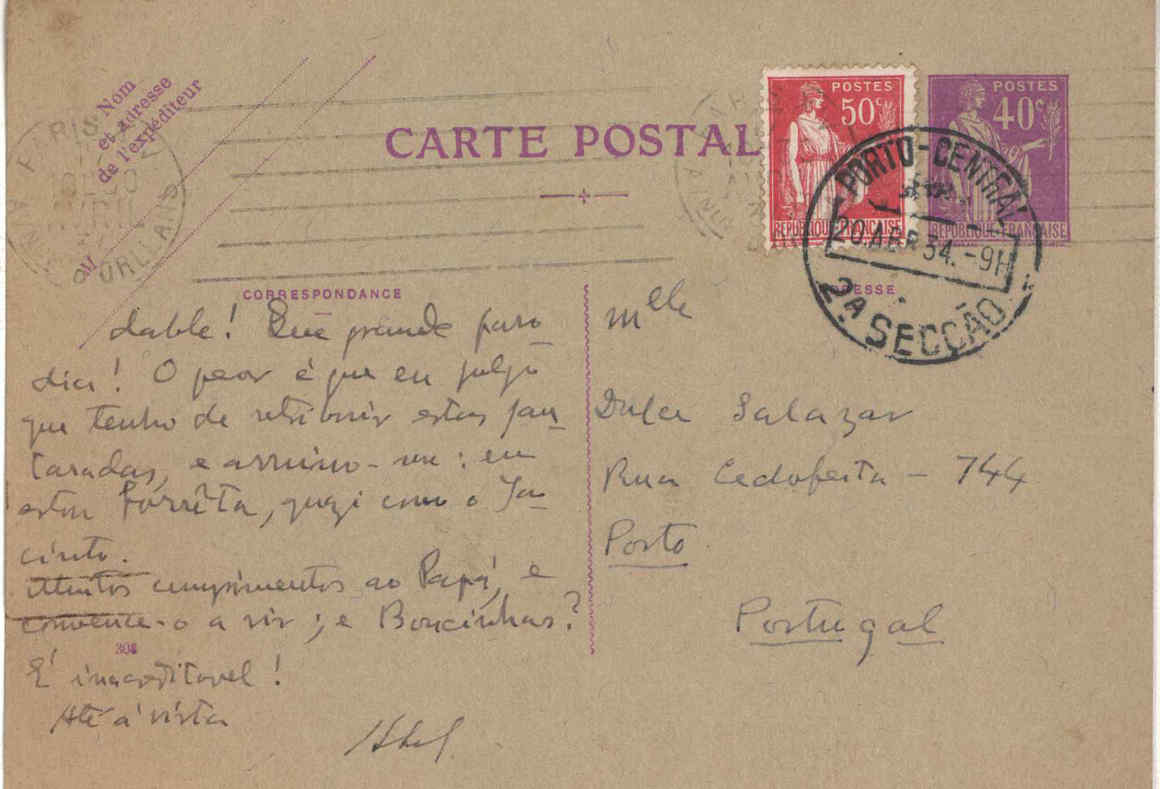 Nom
et adresse
de l'expéditeur
M
PARIS
GARE D'ORLEANS
CARTE POSTALE
POSTES
50c
REPUBLIQUE FRANÇAISE
POSTES
40c
REPUBLIQUE FRANÇAISE
PORTO-CENTRAL
20.ABR34.-9H
2ª. SECÇÃO
CORRESPONDANCE
ADRESSE
dable! Que grande paro-
dia! O peor é que eu julgo
que tenho de retribuir estas jan-
taradas, e arruino-me: eu
estou forrêta, quazi como o Ja-
cinto.
Muitos cumprimentos ao Papá, e
convence-o a vir; e Boucinhas?
É inacreditavel!
Até á vista
Abel
308
Mlle
Dulce Salazar
Rua Cedofeita - 744
Porto
Portugal